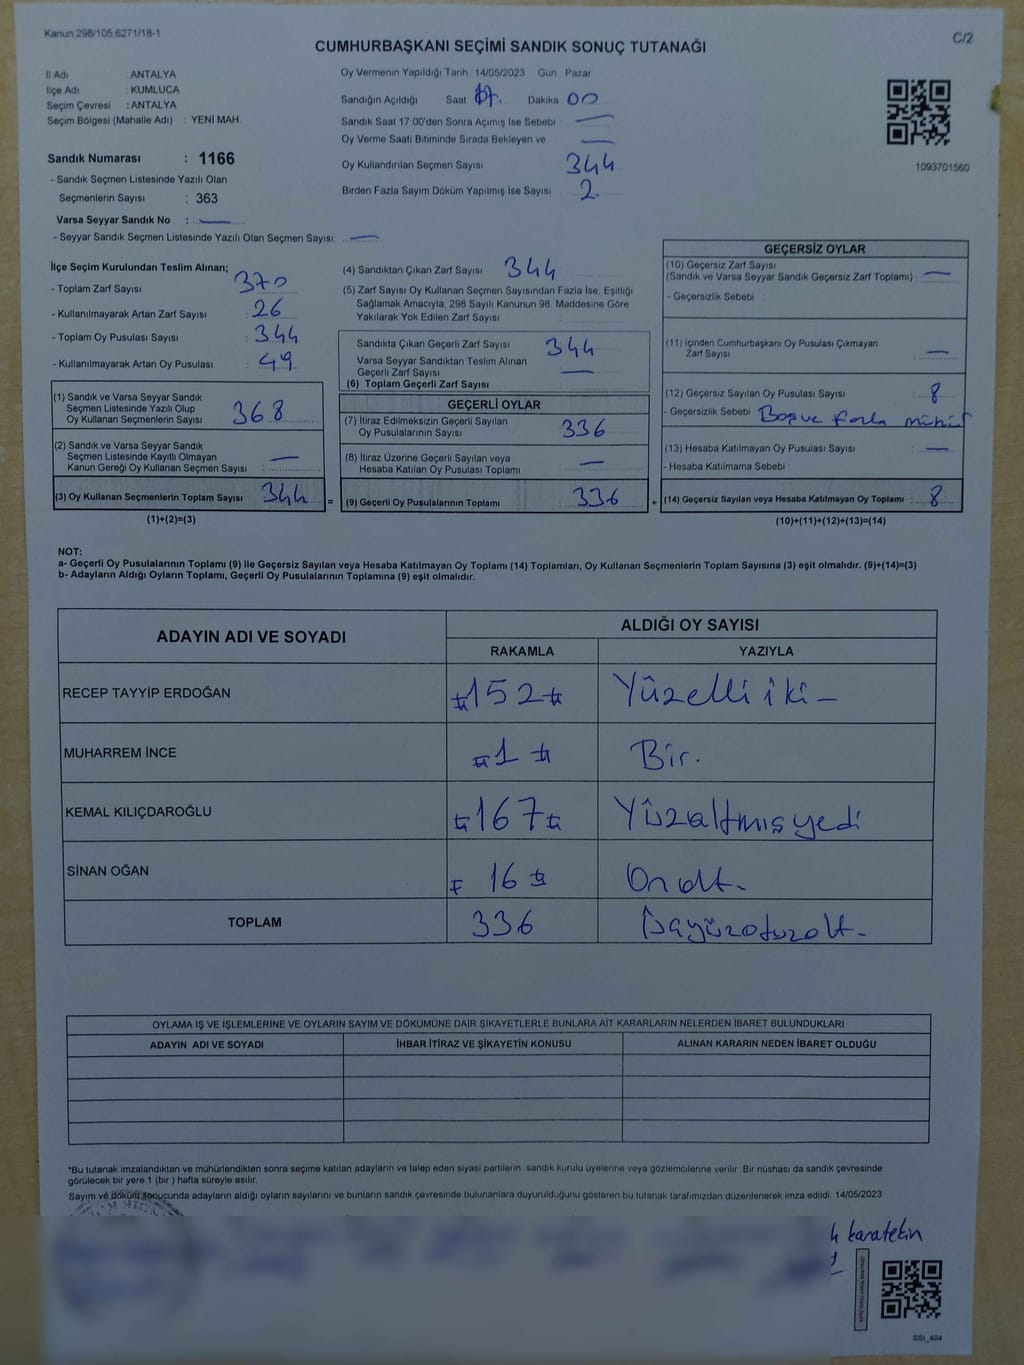 Kanun:298/105,6271/18-1
C/2
CUMHURBAŞKANI SEÇİMİ SANDIK SONUÇ TUTANAĞI
İl Adı : ANTALYA
İlçe Adı : KUMLUCA
Seçim Çevresi : ANTALYA
Seçim Bölgesi (Mahalle Adı) : YENİ MAH.
Sandık Numarası : 1166
- Sandık Seçmen Listesinde Yazılı Olan
Seçmenlerin Sayısı : 363
Varsa Seyyar Sandık No :
- Seyyar Sandık Seçmen Listesinde Yazılı Olan Seçmen Sayısı :
Oy Vermenin Yapıldığı Tarih : 14/05/2023 Gün : Pazar
Sandığın Açıldığı Saat Dakika 00
Sandık Saat 17:00'den Sonra Açımış İse Sebebi :
Oy Verme Saati Bitiminde Sırada Bekleyen ve
Oy Kullandırılan Seçmen Sayısı : 344
Birden Fazla Sayım Döküm Yapılmış İse Sayısı : 2.
1093701560
İlçe Seçim Kurulundan Teslim Alınan;
- Toplam Zarf Sayısı : 370
- Kullanılmayarak Artan Zarf Sayısı : 26
- Toplam Oy Pusulası Sayısı : 344
- Kullanılmayarak Artan Oy Pusulası : 49
(1) Sandık ve Varsa Seyyar Sandık
Seçmen Listesinde Yazılı Olup
Oy Kullanan Seçmenlerin Sayısı : 368
(2) Sandık ve Varsa Seyyar Sandık
Seçmen Listesinde Kayıtlı Olmayan
Kanun Gereği Oy Kullanan Seçmen Sayısı :
(3) Oy Kullanan Seçmenlerin Toplam Sayısı : 344 =
(1)+(2)=(3)
(4) Sandıktan Çıkan Zarf Sayısı : 344
(5) Zarf Sayısı Oy Kullanan Seçmen Sayısından Fazla İse, Eşitliği
Sağlamak Amacıyla; 298 Sayılı Kanunun 98. Maddesine Göre
Yakılarak Yok Edilen Zarf Sayısı :
Sandıkta Çıkan Geçerli Zarf Sayısı : 344
Varsa Seyyar Sandıktan Teslim Alınan
Geçerli Zarf Sayısı :
(6) Toplam Geçerli Zarf Sayısı :
GEÇERLİ OYLAR
(7) İtiraz Edilmeksizin Geçerli Sayılan
Oy Pusulalarının Sayısı : 336
(8) İtiraz Üzerine Geçerli Sayılan veya
Hesaba Katılan Oy Pusulası Toplamı :
(9) Geçerli Oy Pusulalarının Toplamı : 336 +
GEÇERSİZ OYLAR
(10) Geçersiz Zarf Sayısı
(Sandık ve Varsa Seyyar Sandık Geçersiz Zarf Toplamı) :
- Geçersizlik Sebebi :
(11) İçinden Cumhurbaşkanı Oy Pusulası Çıkmayan
Zarf Sayısı :
(12) Geçersiz Sayılan Oy Pusulası Sayısı : 8
- Geçersizlik Sebebi : Boş ve fazla mühür
(13) Hesaba Katılmayan Oy Pusulası Sayısı :
- Hesaba Katılmama Sebebi :
(14) Geçersiz Sayılan veya Hesaba Katılmayan Oy Toplamı : 8
(10)+(11)+(12)+(13)=(14)
NOT:
a- Geçerli Oy Pusulalarının Toplamı (9) ile Geçersiz Sayılan veya Hesaba Katılmayan Oy Toplamı (14) Toplamları, Oy Kullanan Seçmenlerin Toplam Sayısına (3) eşit olmalıdır. (9)+(14)=(3)
b- Adayların Aldığı Oyların Toplamı, Geçerli Oy Pusulalarının Toplamına (9) eşit olmalıdır.
ADAYIN ADI VE SOYADI ALDIĞI OY SAYISI
RAKAMLA YAZIYLA
RECEP TAYYİP ERDOĞAN #152# Yüzelli iki -
MUHARREM İNCE #1# Bir.
KEMAL KILIÇDAROĞLU #167# Yüzaltmışyedi
SİNAN OĞAN #16# Onaltı-
TOPLAM 336 Üçyüzotuzaltı-
OYLAMA İŞ VE İŞLEMLERİNE VE OYLARIN SAYIM VE DÖKÜMÜNE DAİR ŞİKAYETLERLE BUNLARA AİT KARARLARIN NELERDEN İBARET BULUNDUKLARI
ADAYIN ADI VE SOYADI İHBAR İTİRAZ VE ŞİKAYETİN KONUSU ALINAN KARARIN NEDEN İBARET OLDUĞU
*Bu tutanak imzalandıktan ve mühürlendikten sonra seçime katılan adayların ve talep eden siyasi partilerin sandık kurulu üyelerine veya gözlemcilerine verilir. Bir nüshası da sandık çevresinde
görülecek bir yere 1 (bir) hafta süreyle asılır.
Sayım ve döküm sonucunda adayların aldığı oyların sayılarını ve bunların sandık çevresinde bulunanlara duyurulduğunu gösteren bu tutanak tarafımızdan düzenlenerek imza edildi. 14/05/2023
karatekin
SSI_404